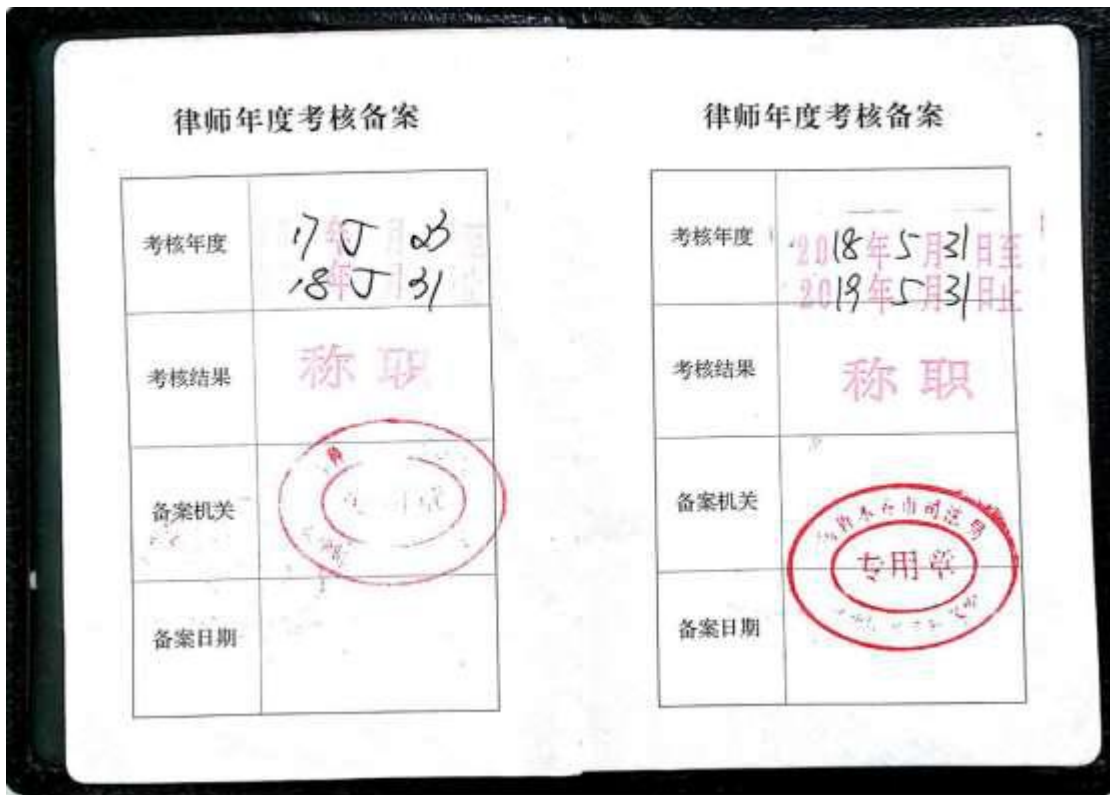 律师年度考核备案
考核年度
17年5月23
18年5 31
考核结果
称职
备案机关
备案日期
律师年度考核备案
考核年度
2018年5月31日至
2019年5月31日止
考核结果
称职
备案机关
市司法局
专用章
备案日期